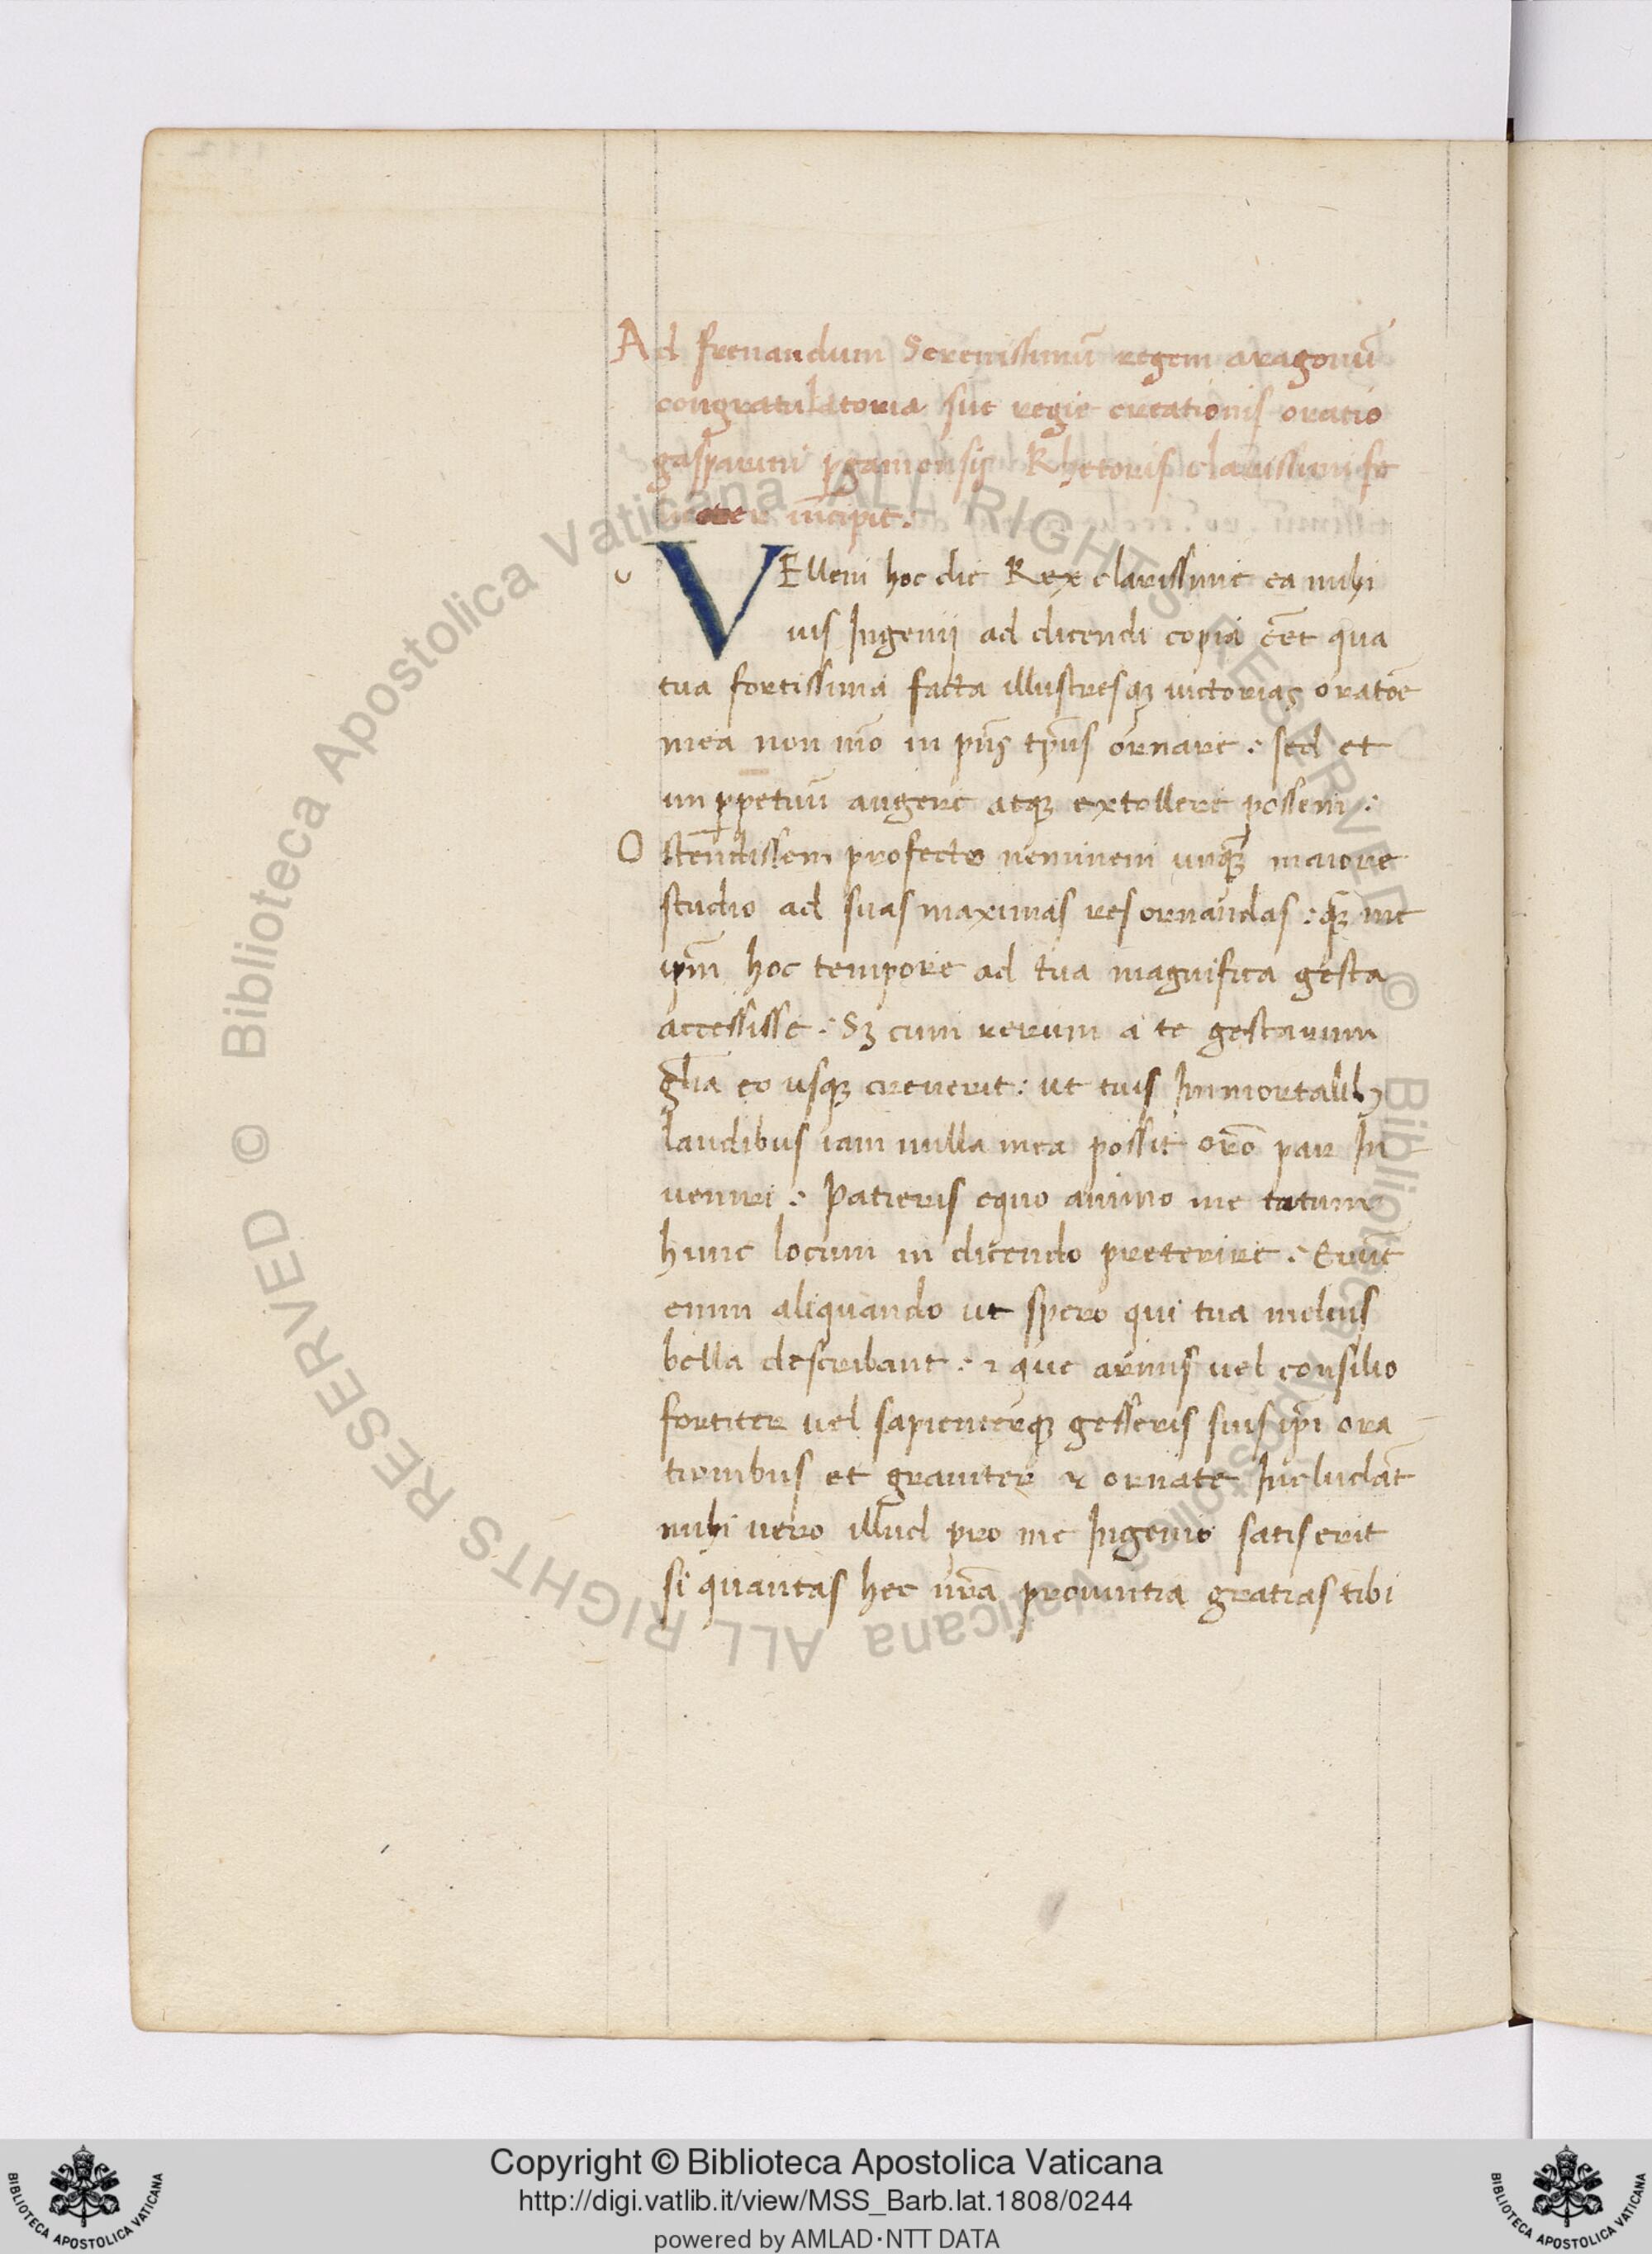 Ad frenandum Serenissimũ regem aragonũ
congratulatoria sue regie creationis oratio
gasparini pgamensis Rhetoris clarissimi fe
incipit.
VEllem hoc die Rex clarissime ea mihi
v
uis Ingenij ad dicendi copiã eẽt qua
tua fortissima facta illustresqꝫ uictorias oratõe
mea non mõ in pñs tp̃us ornare : sed et
im ꝑpetuũ augere atqꝫ extollere possem :
Ostendissem profecto neminem unqꝫ maiore
studio ad suas maximas res ornandas : qꝫ me
ip̃m hoc tempore ad tua magnifica gesta
accessisse : Sꝫ cum rerum a te gestarum
gl̃ia eo usqꝫ creuerit : ut tuis Immortalibꝫ
laudibus iam nulla mea possit orõ par In
ueniri : Patieris equo animo me totum
hunc locum in dicendo preterire : Erũt
enim aliquando ut spero qui tua melius
bella describant : ⁊ que armis uel consilio
fortiter uel sapienterqꝫ gesseris suis ip̃i ora
tionibus et grauiter ⁊ ornate Includãt
mihi uero illud pro me Ingenio satis erit
si quantas hec ur̃a prouintia gratias tibi
© Biblioteca Apostolica Vaticana ALL RIGHTS RESERVED © Biblioteca Apostolica Vaticana ALL RIGHTS RESERVED
Copyright © Biblioteca Apostolica Vaticana
http://digi.vatlib.it/view/MSS_Barb.lat.1808/0244
powered by AMLAD·NTT DATA
BIBLIOTECA APOSTOLICA VATICANA
BIBLIOTECA APOSTOLICA VATICANA